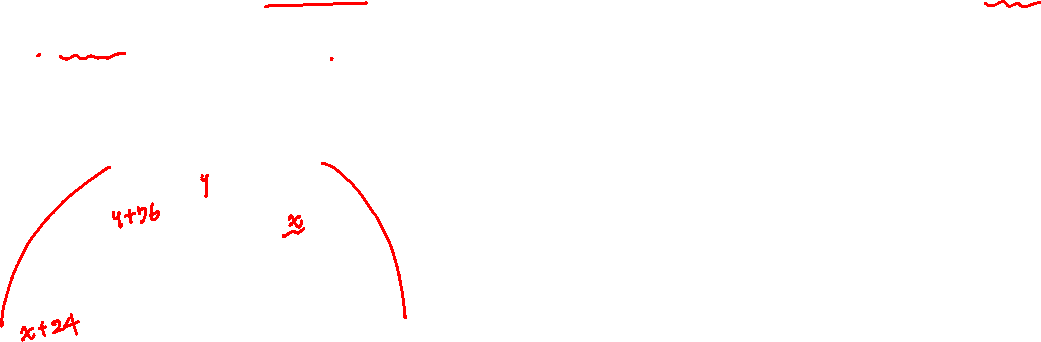 y
y+76
x
x+24